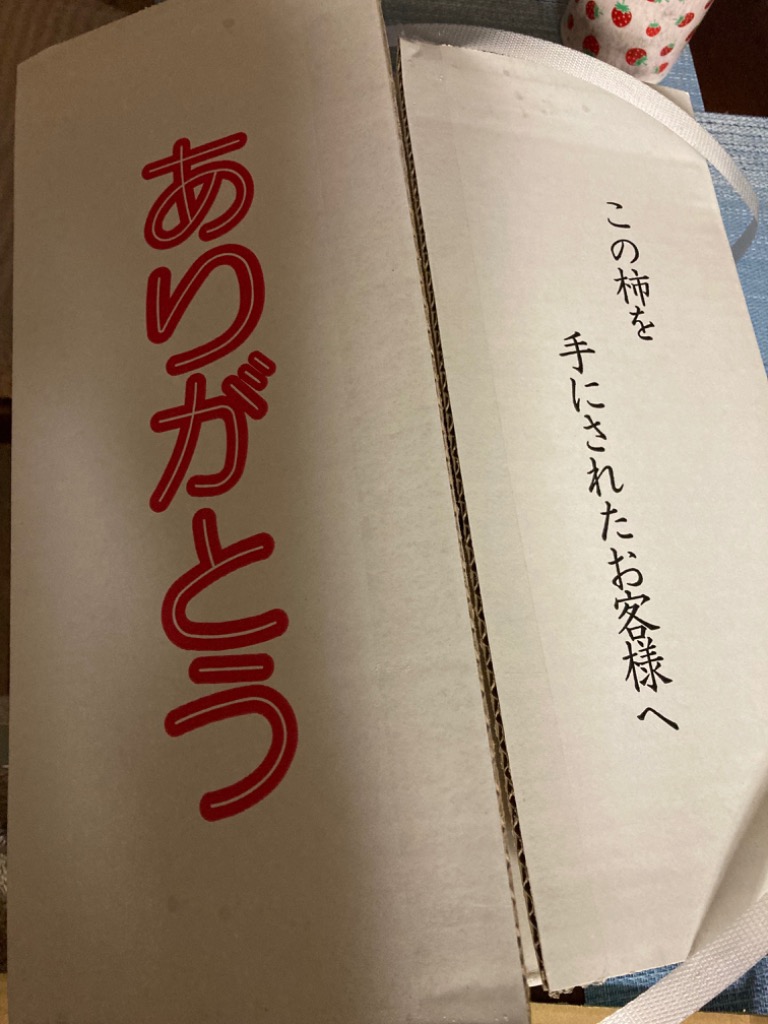 この柿を
手にされたお客様へ
ありがとう